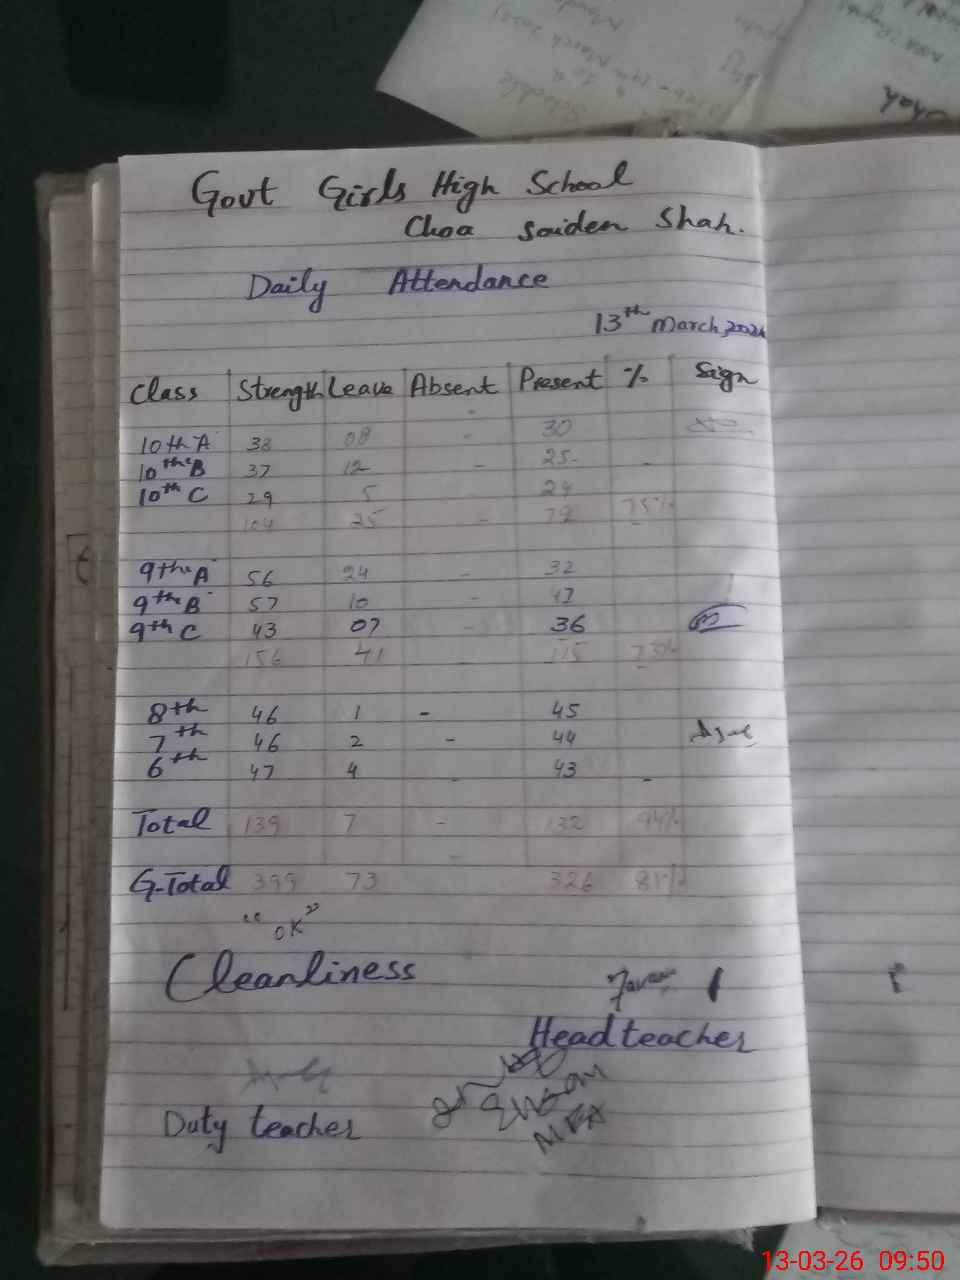 Govt Girls High School
Choa Saiden Shah.
Daily Attendance
13th March, 2026
Class Strength Leave Absent Present % Sign
10th A 38 08 - 30
10th B 37 12 - 25 -
10th C 29 5 24
104 25 - 79 75%
9th A 56 24 - 32
9th B 57 10 - 47
9th C 43 07 - 36
156 41 115 73%
8th 46 1 - 45
7th 46 2 - 44
6th 47 4 - 43 -
Total 139 7 - 132 94%
G-Total 399 73 326 81%
"OK"
Cleanliness
Head teacher
Duty teacher
13-03-26 09:50